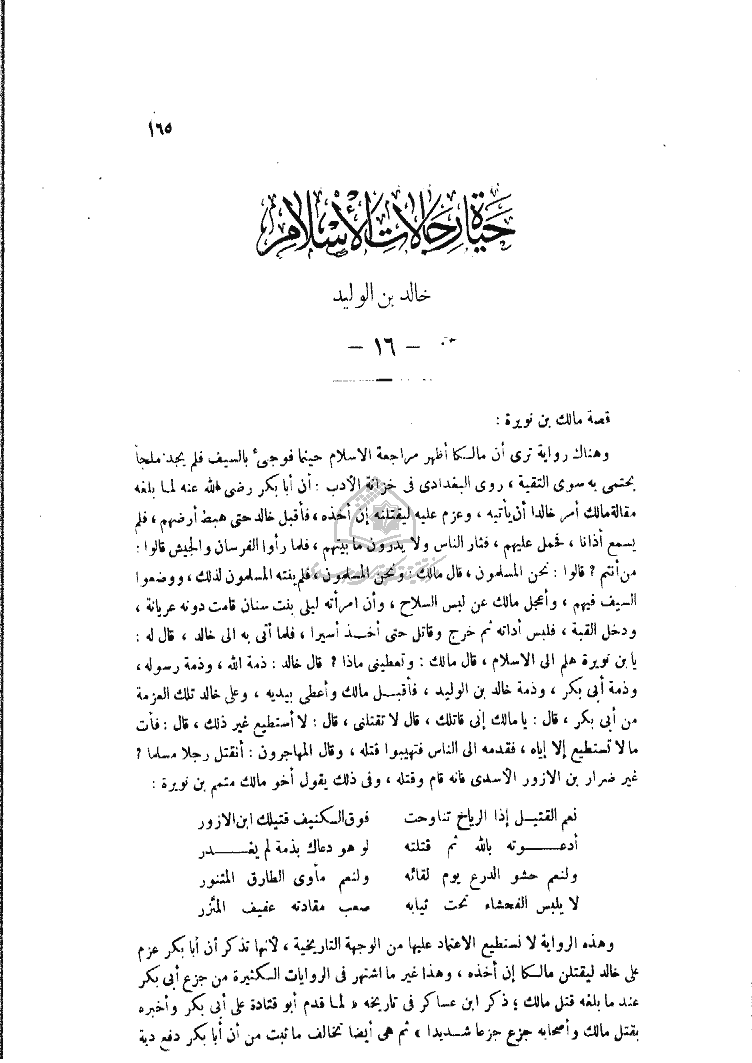 ١٦٥
حياة رجالات الأسلام
خالد بن الوليد
— ١٦ —
قصة مالك بن نويرة :
وهناك رواية ترى أن مالكا أظهر مراجعة الاسلام حينما فوجىء بالسيف فلم يجد ملجأ
يحتمى به سوى التقية ، روى البغدادى فى خزانة الأدب : أن أبا بكر رضى الله عنه لما بلغه
مقالة مالك أمر خالدا أن يأتيه ، وعزم عليه ليقتلنه إن أخذه ، فأقبل خالد حتى هبط أرضهم ، فلم
يسمع أذانا ، فحمل عليهم ، فثار الناس ولا يدرون ما بيتهم ، فلما رأوا الفرسان والجيش قالوا :
من أنتم ? قالوا : نحن المسلمون ، قال مالك : ونحن المسلمون ، فلم ينته المسلمون لذلك ، ووضعوا
السيف فيهم ، وأعجل مالك عن لبس السلاح ، وأن امرأته ليلى بنت سنان قامت دونه عريانة ،
ودخل القبة ، فلبس أداته ثم خرج وقاتل حتى أخذ أسيرا ، فلما أتى به الى خالد ، قال له :
يا بن نويرة هلم الى الاسلام ، قال مالك : وتعطينى ماذا ? قال خالد : ذمة الله ، وذمة رسوله ،
وذمة أبى بكر ، وذمة خالد بن الوليد ، فأقبل مالك وأعطى بيديه ، وعلى خالد تلك العزمة
من أبى بكر ، قال : يا مالك إنى قاتلك ، قال لا تقتلنى ، قال : لا أستطيع غير ذلك ، قال : فأت
ما لا تستطيع إلا إياه ، فقدمه الى الناس فتهيبوا قتله ، وقال المهاجرون : أنقتل رجلا مسلما ?
غير ضرار بن الازور الأسدى فانه قام وقتله ، وفى ذلك يقول أخو مالك متمم بن نويرة :
نعم القتيل إذا الرياح تناوحت فوق الكنيف قتيلك ابن الازور
أدعوته بالله ثم قتلته لو هو دعاك بذمة لم يغدر
ولنعم حشو الدرع يوم لقائه ولنعم مأوى الطارق المتنور
لا يلبس الفحشاء تحت ثيابه صعب مقادته عفيف المئزر
وهذه الرواية لا نستطيع الاعتماد عليها من الوجهة التاريخية ، لأنها تذكر أن أبا بكر عزم
على خالد ليقتلن مالكا إن أخذه ، وهذا غير ما اشتهر فى الروايات الكثيرة من جزع أبى بكر
عند ما بلغه قتل مالك ؛ ذكر ابن عساكر فى تاريخه « لما قدم أبو قتادة على أبى بكر وأخبره
بقتل مالك وأصحابه جزع جزعا شديدا » ثم هى أيضا تخالف ما ثبت من أن أبا بكر دفع دية